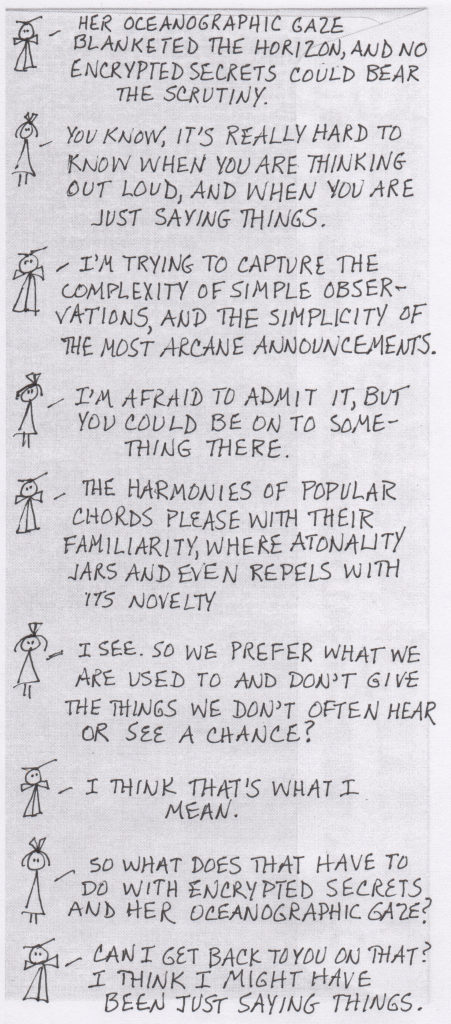 - HER OCEANOGRAPHIC GAZE
BLANKETED THE HORIZON, AND NO
ENCRYPTED SECRETS COULD BEAR
THE SCRUTINY.
- YOU KNOW, IT'S REALLY HARD TO
KNOW WHEN YOU ARE THINKING
OUT LOUD, AND WHEN YOU ARE
JUST SAYING THINGS.
- I'M TRYING TO CAPTURE THE
COMPLEXITY OF SIMPLE OBSER-
VATIONS, AND THE SIMPLICITY OF
THE MOST ARCANE ANNOUNCEMENTS.
- I'M AFRAID TO ADMIT IT, BUT
YOU COULD BE ON TO SOME-
THING THERE.
- THE HARMONIES OF POPULAR
CHORDS PLEASE WITH THEIR
FAMILIARITY, WHERE ATONALITY
JARS AND EVEN REPELS WITH
ITS NOVELTY
- I SEE. SO WE PREFER WHAT WE
ARE USED TO AND DON'T GIVE
THE THINGS WE DON'T OFTEN HEAR
OR SEE A CHANCE?
- I THINK THAT'S WHAT I
MEAN.
- SO WHAT DOES THAT HAVE TO
DO WITH ENCRYPTED SECRETS
AND HER OCEANOGRAPHIC GAZE?
- CAN I GET BACK TO YOU ON THAT?
I THINK I MIGHT HAVE
BEEN JUST SAYING THINGS.